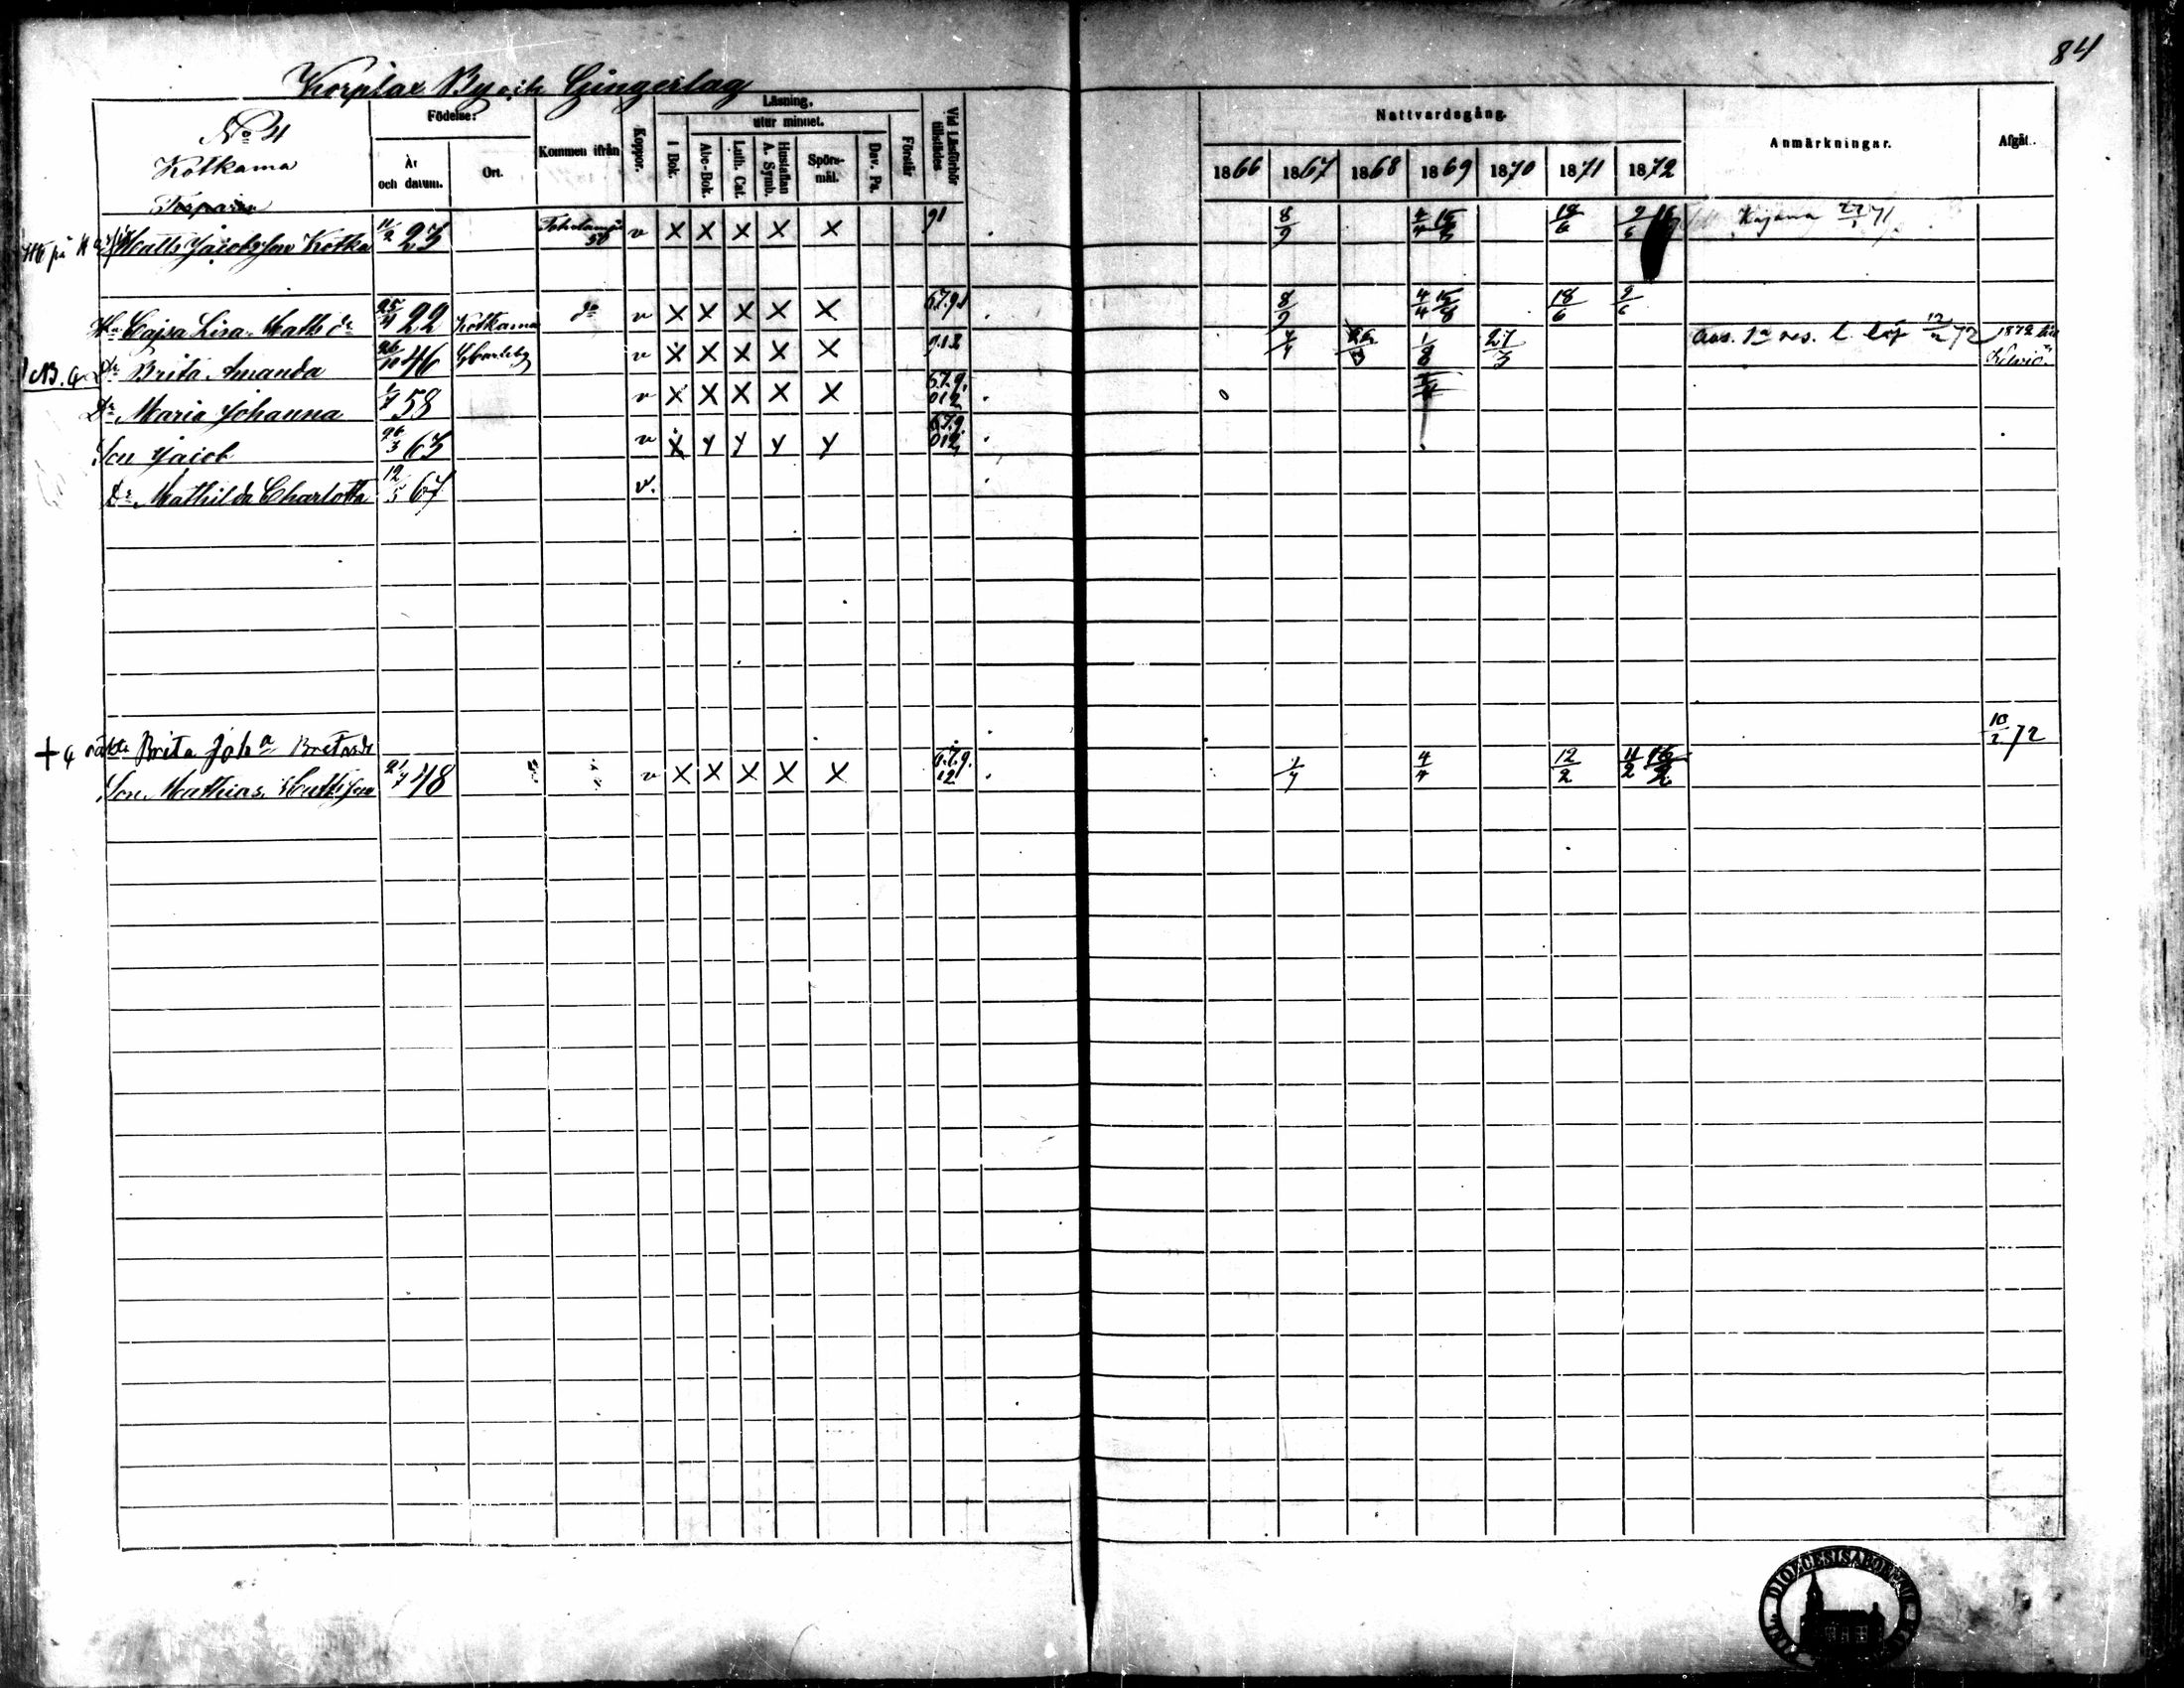 84
Korplax By och Gingerlag
No 4
Kotkama
Födelse:
År och datum.
Ort.
Kommen ifrån
Koppor.
Läsning,
I Bok.
utur minnet.
Abc-Bok.
Luth. Cat.
Hustaflan A. Symb.
Spörs-mål.
Dav. Ps.
Förstår
Vid Läsförhör tillstädes
Nattvardsgång.
1866 1867 1868 1869 1870 1871 1872
Anmärkningar.
Afgåt.
Matts Jacobsson Kotka 11/2 23 50 v X X X X X 91 8/9 18/6 Kajana 71
Hu Cajsa Lisa Matts dr 25/4 22 Kotkama do v X X X X X 6.7.91 8/9 4/4 15/8 18/6 9/6
Dr Brita Amanda 26/10 46 v X X X X X 9.12 1/8 27/3 12/2 72 1872
Dr Maria Johanna 58 v X X X X X 6.7.9. 012
Son Jacob 26/3 63 v X y y y y 6.7.9. 012
Dr Mathilda Charlotta 12/5 67 v.
+ Brita Joh a 10/2 72
Son Mathias Mattsson 21/7 48 v X X X X X 6.7.9. 12 4/4 12/2 11/2
DIOECESIS ABOENSIS